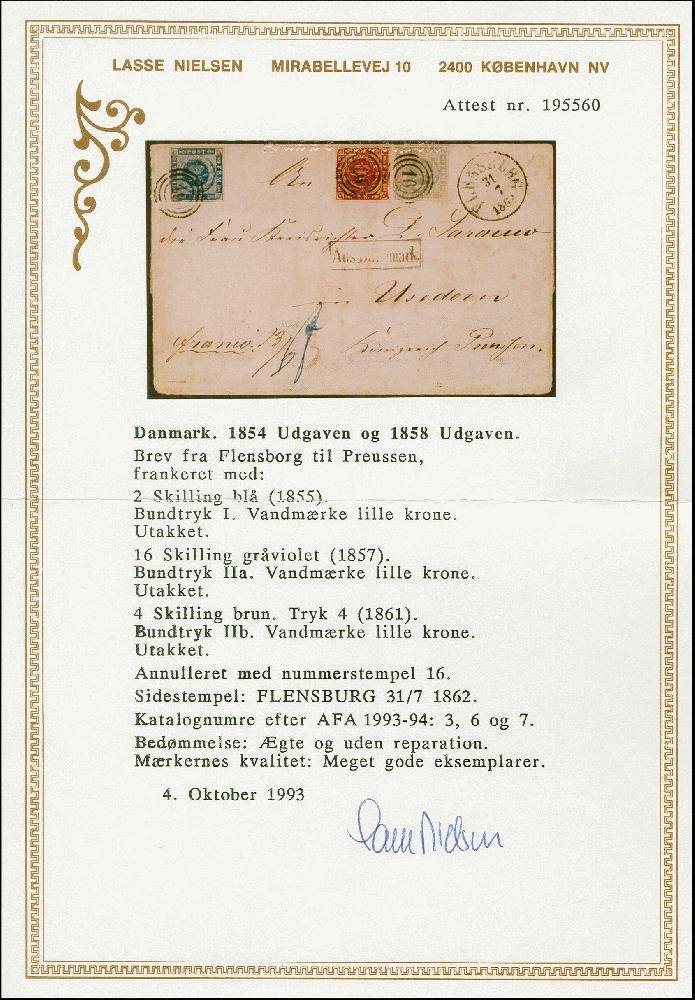 LASSE NIELSEN MIRABELLEVEJ 10 2400 KØBENHAVN NV
Attest nr. 195560
An
FLENSBURG
31
7
186
16
die Frau Kreisrichter
Aus Dänemark
in Usedom
franco.
Königreich Preussen.
Danmark. 1854 Udgaven og 1858 Udgaven.
Brev fra Flensborg til Preussen,
frankeret med:
2 Skilling blå (1855).
Bundtryk I. Vandmærke lille krone.
Utakket.
16 Skilling gråviolet (1857).
Bundtryk IIa. Vandmærke lille krone.
Utakket.
4 Skilling brun. Tryk 4 (1861).
Bundtryk IIb. Vandmærke lille krone.
Utakket.
Annulleret med nummerstempel 16.
Sidestempel: FLENSBURG 31/7 1862.
Katalognumre efter AFA 1993-94: 3, 6 og 7.
Bedømmelse: Ægte og uden reparation.
Mærkernes kvalitet: Meget gode eksemplarer.
4. Oktober 1993
Lasse Nielsen